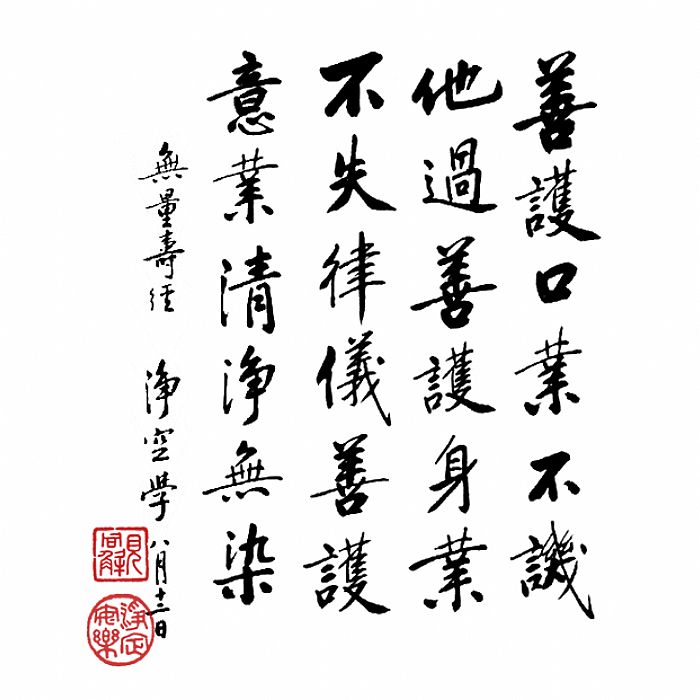 善護口業不譏
他過善護身業
不失律儀善護
意業清淨無染
無量壽經 淨空學 八月十三日